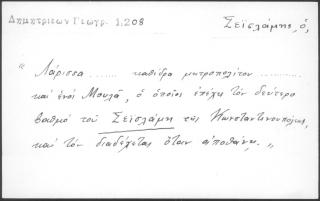 Δημητριέων Γεωγρ. 1,208
Σεϊσλάμης, ὁ,
"Λάρισσα ........ καθέδρα μητροπολίτου ..........
καὶ ἑνὸς Μουλᾶ, ὁ ὁποῖος ἐπέχει τὸν δεύτερο
βαθμὸ τοῦ Σεϊσλάμη τῆς Κωνσταντινουπόλεως,
καὶ τὸν διαδέχεται ὅταν ἀποθάνῃ."